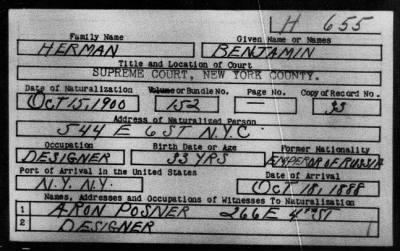 H 655
Family Name Given Name or Names
HERMAN BENJAMIN
Title and Location of Court
SUPREME COURT, NEW YORK COUNTY.
Date of Naturalization Volume or Bundle No. Page No. Copy of Record No.
OCT 15, 1900 152 — 33
Address of Naturalized Person
544 E 6 ST N.Y.C.
Occupation Birth Date or Age Former Nationality
DESIGNER 33 YRS EMPEROR OF RUSSIA
Port of Arrival in the United States Date of Arrival
N.Y. N.Y. OCT 18, 1888
Names, Addresses and Occupations of Witnesses To Naturalization
1 ARON POSNER 266 E 4TH ST
2 DESIGNER